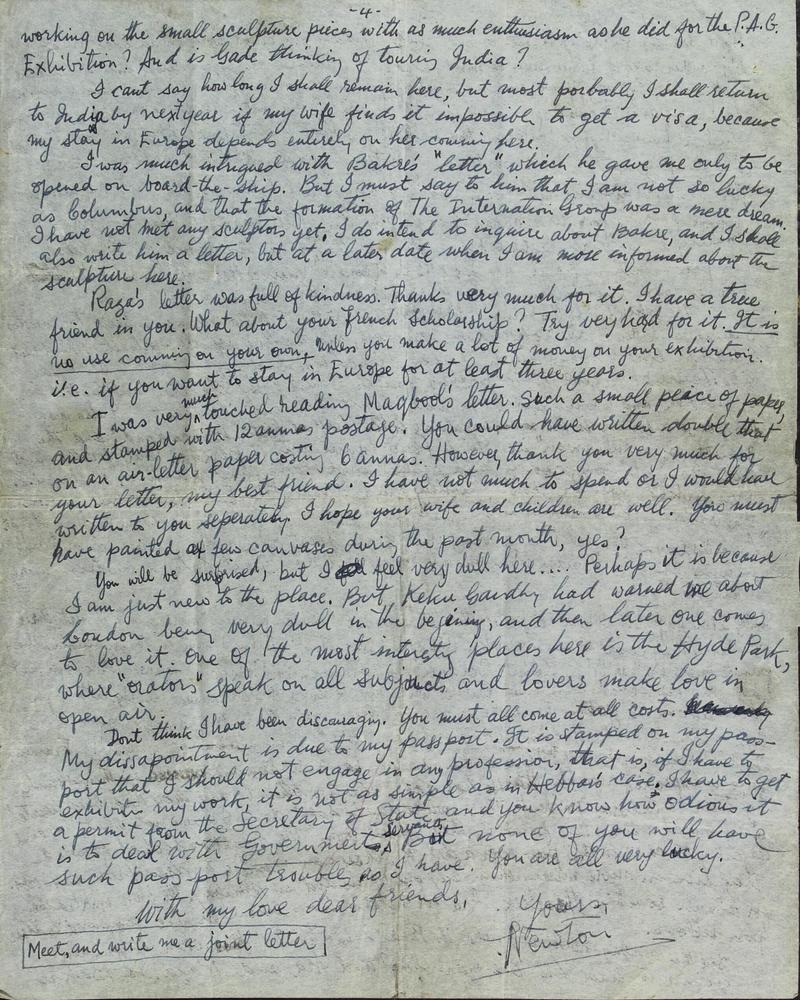 -4-
working on the small sculpture pieces with as much enthusiasm as he did for the P.A.G.
Exhibition? And is Gade thinking of touring India?
I cant say how long I shall remain here, but most porbably I shall return
to India by next year if my wife finds it impossible to get a visa, because
my stay in Europe depends entirely on her coming here.
I was much intrigued with Bakre's "letter" which he gave me only to be
opened on board-the-ship. But I must say to him that I am not so lucky
as Columbus, and that the formation of The Internation Group was a mere dream.
I have not met any sculptors yet. I do intend to inquire about Bakre, and I shall
also write him a letter, but at a later date when I am more informed about the
sculpture here.
Raza's letter was full of kindness. Thanks very much for it. I have a true
friend in you. What about your French Scholarship? Try very hard for it. It is
no use coming on your own, unless you make a lot of money on your exhibition.
i.e. if you want to stay in Europe for at least three years.
I was very much touched reading Maqbool's letter. Such a small peice of paper,
and stamped with 12 annas postage. You could have written double that
on an air-letter paper costing 6 annas. However, thank you very much for
your letter, my best friend. I have not much to spend or I would have
written to you seperately. I hope your wife and children are well. You must
have painted a few canvases during the past month, yes?
You will be surprised, but I feel very dull here.... Perhaps it is because
I am just new to the place. But, Keku Gandhy had warned me about
London being very dull in the begining, and then later one comes
to love it. One of the most interesting places here is the Hyde Park,
where "orators" speak on all subjects and lovers make love in
open air.
Dont think I have been discouraging. You must all come at all costs.
My dissapointment is due to my passport. It is stamped on my pass-
port that I should not engage in any profession, that is, if I have to
exhibit my work, it is not as simple as in Hebbar's case. I have to get
a permit from the Secretary of State and you know how odious it
is to deal with Government servants. But none of you will have
such pass-port trouble, as I have. You are all very lucky.
With my love dear friends,
Yours,
Newton
Meet, and write me a joint letter